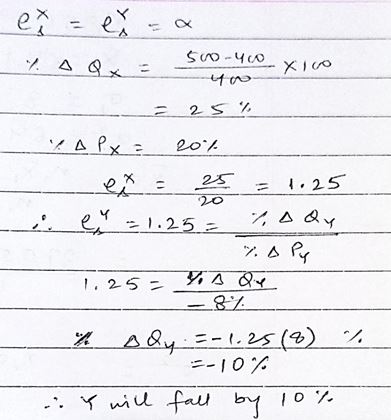 e_s^X = e_s^Y = α
% Δ Q_X = (500-400)/400 × 100
= 25 %
% Δ P_X = 20%
e_s^X = 25/20 = 1.25
∴ e_s^Y = 1.25 = % Δ Q_Y / % Δ P_Y
1.25 = % Δ Q_Y / -8%
% Δ Q_Y = -1.25 (8) %
= -10 %
∴ Y will fall by 10 %